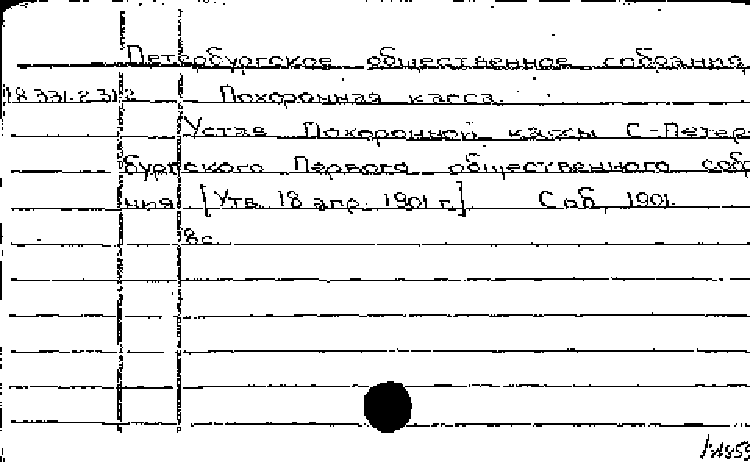 Петербургское общественное собрание
18.331.2.31.2 Похоронная касса.
Устав Похоронной кассы С-Петер-
бургского Первого общественного собра
ния [Утв. 18 апр. 1901 г.] Спб 1901.
8с.